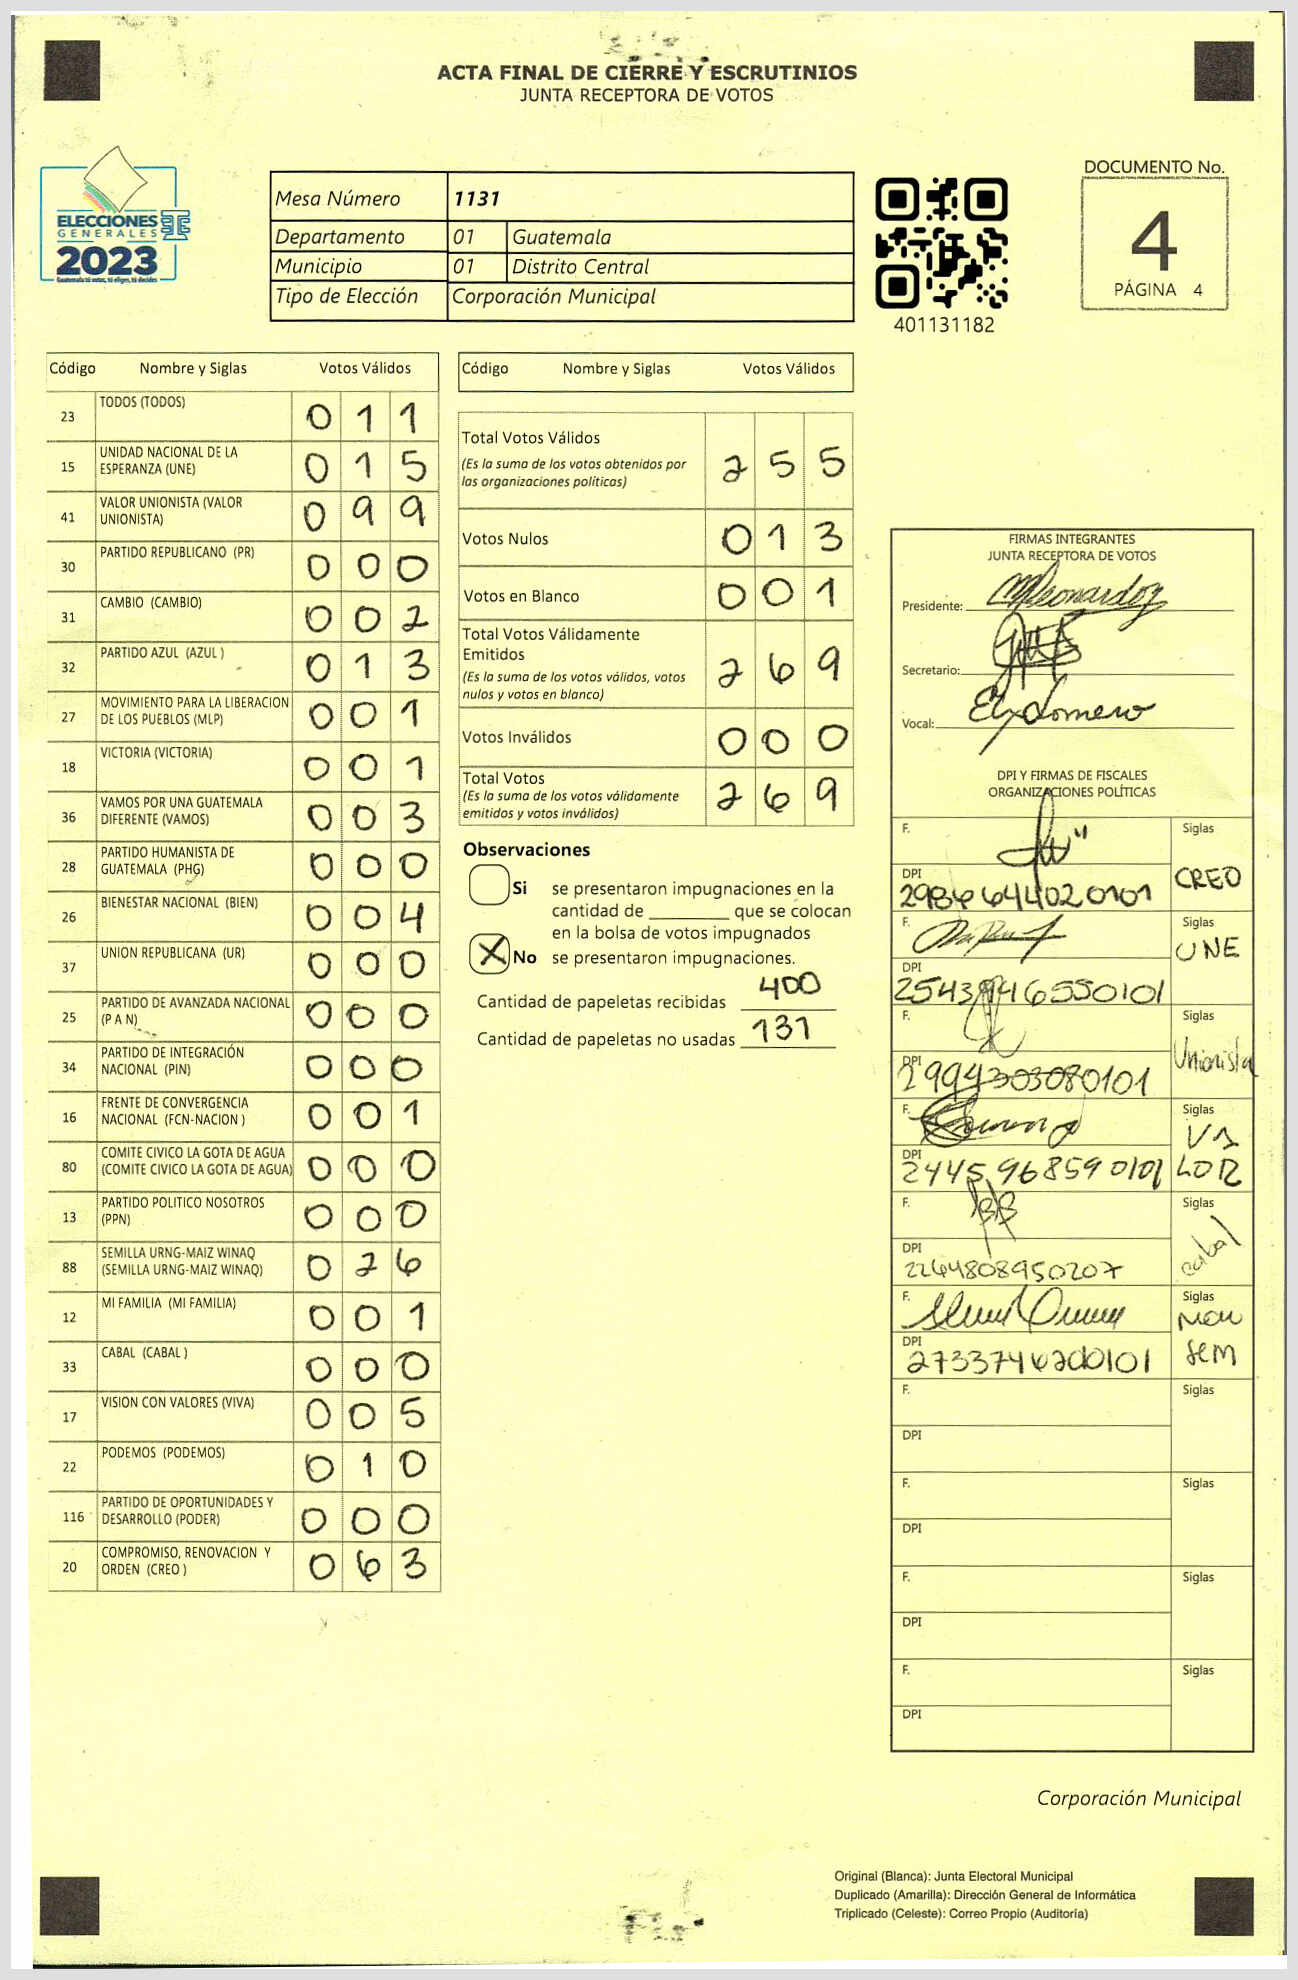 ACTA FINAL DE CIERRE Y ESCRUTINIOS
JUNTA RECEPTORA DE VOTOS
ELECCIONES
GENERALES
2023
Guatemala tú votas, tú eliges, tú decides
Mesa Número 1131
Departamento 01 Guatemala
Municipio 01 Distrito Central
Tipo de Elección Corporación Municipal
401131182
DOCUMENTO No.
4
PÁGINA 4
Código Nombre y Siglas Votos Válidos
23 TODOS (TODOS) 0 1 1
15 UNIDAD NACIONAL DE LA
ESPERANZA (UNE) 0 1 5
41 VALOR UNIONISTA (VALOR
UNIONISTA) 0 9 9
30 PARTIDO REPUBLICANO (PR) 0 0 0
31 CAMBIO (CAMBIO) 0 0 2
32 PARTIDO AZUL (AZUL ) 0 1 3
27 MOVIMIENTO PARA LA LIBERACION
DE LOS PUEBLOS (MLP) 0 0 1
18 VICTORIA (VICTORIA) 0 0 1
36 VAMOS POR UNA GUATEMALA
DIFERENTE (VAMOS) 0 0 3
28 PARTIDO HUMANISTA DE
GUATEMALA (PHG) 0 0 0
26 BIENESTAR NACIONAL (BIEN) 0 0 4
37 UNION REPUBLICANA (UR) 0 0 0
25 PARTIDO DE AVANZADA NACIONAL
(P A N) 0 0 0
34 PARTIDO DE INTEGRACIÓN
NACIONAL (PIN) 0 0 0
16 FRENTE DE CONVERGENCIA
NACIONAL (FCN-NACION ) 0 0 1
80 COMITE CIVICO LA GOTA DE AGUA
(COMITE CIVICO LA GOTA DE AGUA) 0 0 0
13 PARTIDO POLITICO NOSOTROS
(PPN) 0 0 0
88 SEMILLA URNG-MAIZ WINAQ
(SEMILLA URNG-MAIZ WINAQ) 0 2 6
12 MI FAMILIA (MI FAMILIA) 0 0 1
33 CABAL (CABAL ) 0 0 0
17 VISION CON VALORES (VIVA) 0 0 5
22 PODEMOS (PODEMOS) 0 1 0
116 PARTIDO DE OPORTUNIDADES Y
DESARROLLO (PODER) 0 0 0
20 COMPROMISO, RENOVACION Y
ORDEN (CREO ) 0 6 3
Código Nombre y Siglas Votos Válidos
Total Votos Válidos
(Es la suma de los votos obtenidos por
las organizaciones políticas) 2 5 5
Votos Nulos 0 1 3
Votos en Blanco 0 0 1
Total Votos Válidamente
Emitidos
(Es la suma de los votos válidos, votos
nulos y votos en blanco) 2 6 9
Votos Inválidos 0 0 0
Total Votos
(Es la suma de los votos válidamente
emitidos y votos inválidos) 2 6 9
Observaciones
Si se presentaron impugnaciones en la
cantidad de ________ que se colocan
en la bolsa de votos impugnados
X No se presentaron impugnaciones.
Cantidad de papeletas recibidas 400
Cantidad de papeletas no usadas 131
FIRMAS INTEGRANTES
JUNTA RECEPTORA DE VOTOS
Presidente:
Secretario:
Vocal:
DPI Y FIRMAS DE FISCALES
ORGANIZACIONES POLÍTICAS
F. Siglas
CREO
DPI
F. Siglas
UNE
DPI
F. Siglas
Unionista
DPI
2994303080101
F. Siglas
VA
LOR
DPI
2445968590101
F. Siglas
cabal
DPI
2264808950207
F. Siglas
SEM
DPI
F. Siglas
DPI
F. Siglas
DPI
F. Siglas
DPI
F. Siglas
DPI
Corporación Municipal
Original (Blanca): Junta Electoral Municipal
Duplicado (Amarilla): Dirección General de Informática
Triplicado (Celeste): Correo Propio (Auditoría)